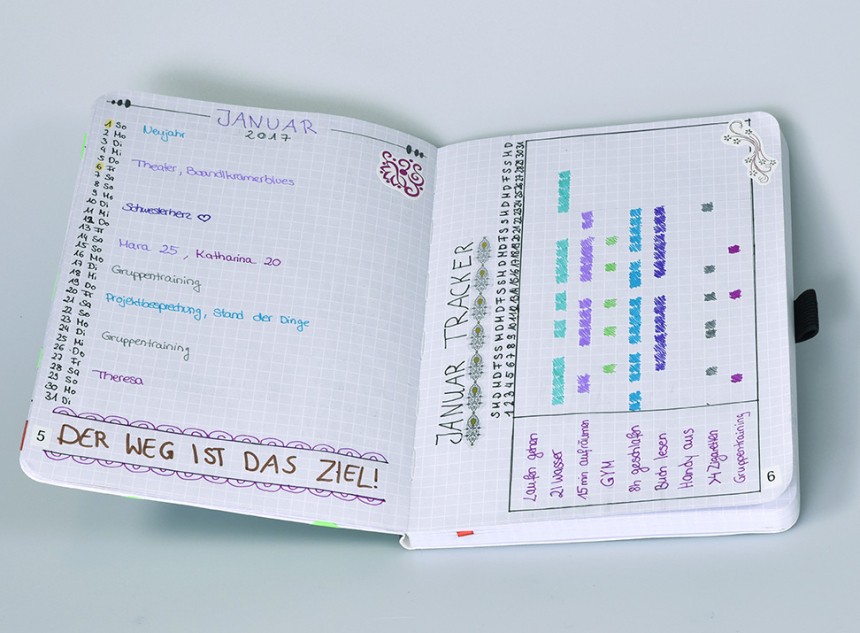 JANUAR
2017
1 So
2 Mo
3 Di
4 Mi
5 Do
6 Fr
7 Sa
8 So
9 Mo
10 Di
11 Mi
12 Do
13 Fr
14 Sa
15 So
16 Mo
17 Di
18 Mi
19 Do
20 Fr
21 Sa
22 So
23 Mo
24 Di
25 Mi
26 Do
27 Fr
28 Sa
29 So
30 Mo
31 Di
Neujahr
Theater, Boandlkramerblues
Schwesterherz ♡
Mara 25, Katharina 20
Gruppentraining
Projektbesprechung, Stand der Dinge
Gruppentraining
Theresa
DER WEG IST DAS ZIEL!
5
JANUAR TRACKER
S M D M D F S S M D M D F S S M D M D F S S M D M D F S S M D
1 2 3 4 5 6 7 8 9 10 11 12 13 14 15 16 17 18 19 20 21 22 23 24 25 26 27 28 29 30 31
Laufen gehen
2l Wasser
15 min aufräumen
GYM
8h geschlafen
Buch lesen
Handy aus
Zigaretten
Gruppentraining
6